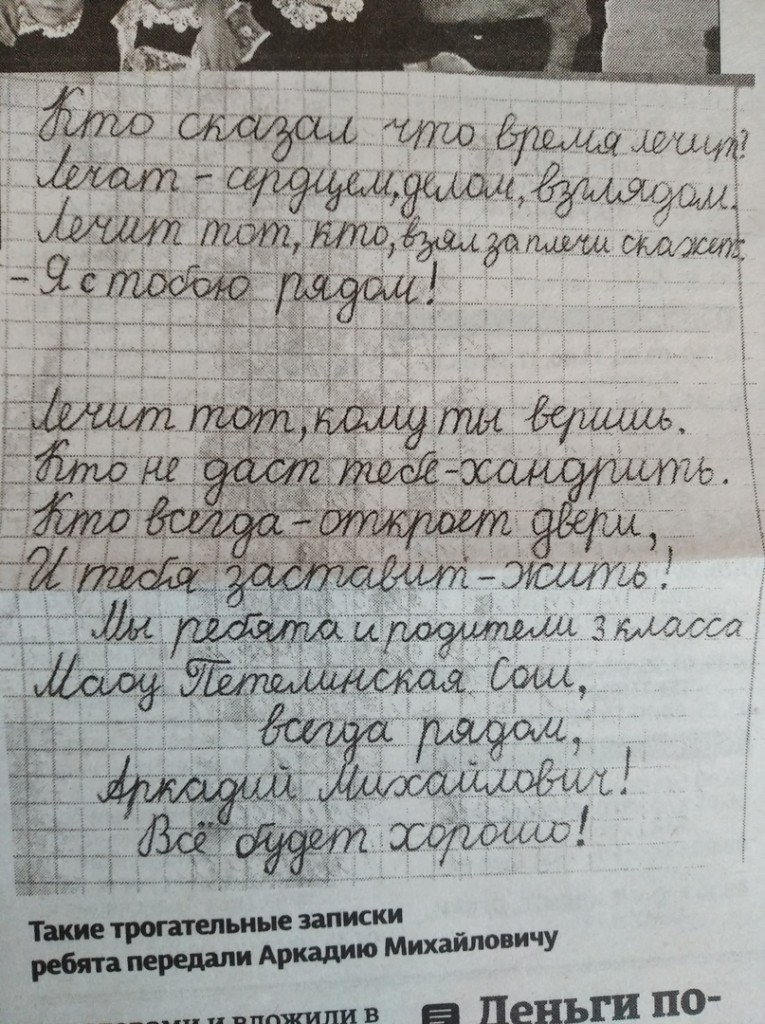 Кто сказал что время лечит?
Лечат - сердцем, делом, взглядом.
Лечит тот, кто, взял за плечи скажет:
- Я с тобою рядом!
Лечит тот, кому ты веришь.
Кто не даст тебе - хандрить.
Кто всегда - откроет двери,
И тебя заставит - жить!
Мы ребята и родители 3 класса
Маоу Петелинская Сош,
всегда рядом,
Аркадий Михайлович!
Всё будет хорошо!
Такие трогательные записки
ребята передали Аркадию Михайловичу
и вложили в
Деньги по-